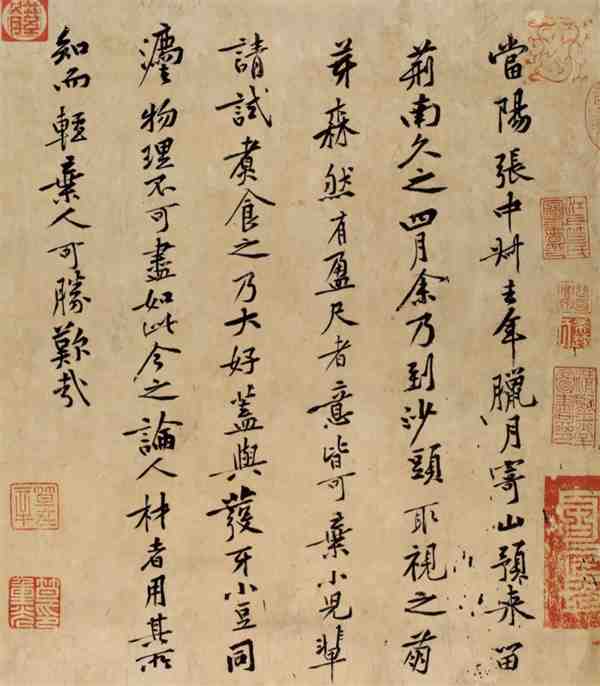 當陽張中叔去年臘月寄山預来留
荊南久之四月余乃到沙頭取視之萌
芽森然有盈尺者意皆可棄小兒輩
請試煮食之乃大好蓋與發牙小豆同
灋物理不可盡如此今之論人材者用其所
知而輕棄人可勝歎哉